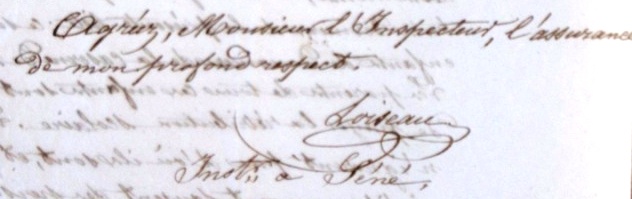 Agréez, Monsieur l'Inspecteur, l'assurance
de mon profond respect.
Loiseau
Instr. à Géné.